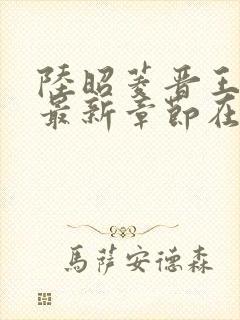 陸昭菱晋王
最新章節在
馬薩安德森